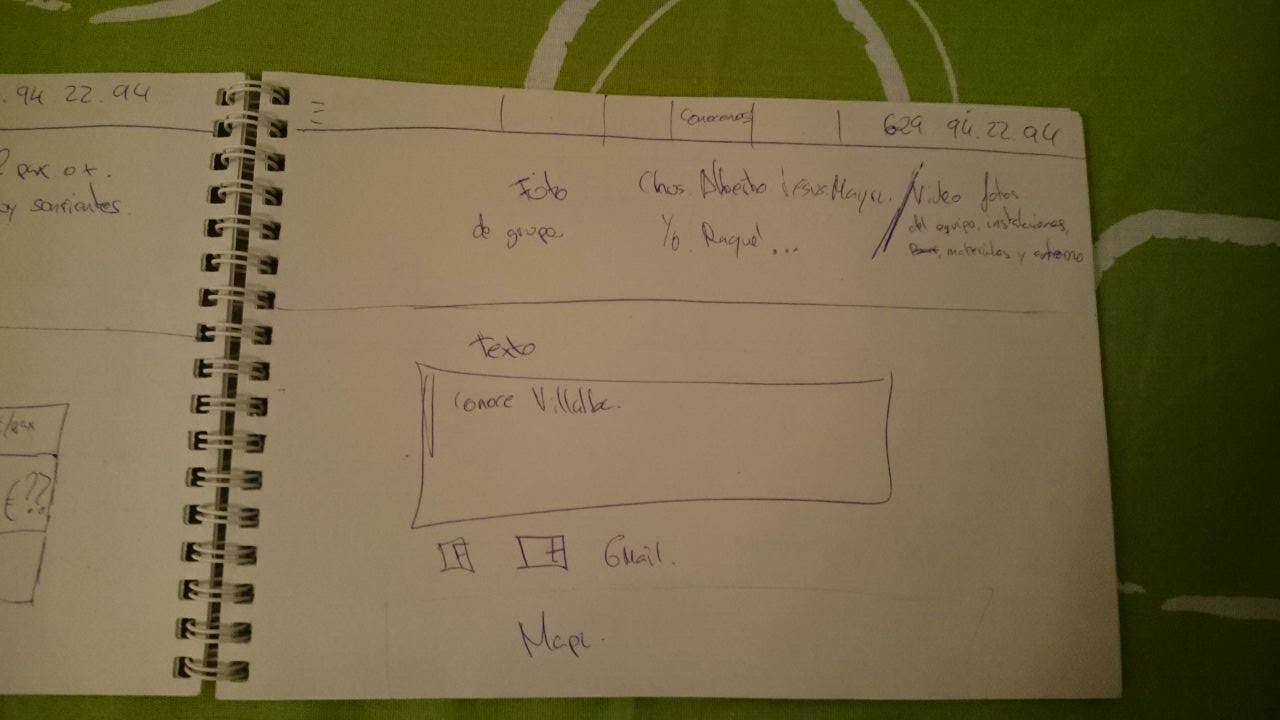 . 94 22. 94
pax o +.
sonrientes.
€??
Conocenos
629 94.22.94
Foto
de grupo.
Chus Alberto Jesus Mayra.
Yo Raquel ...
Video fotos
del equipo, instalaciones,
, materiales y entorno
Texto
Conoce Villalba.
f
t
Gmail.
Mapa.